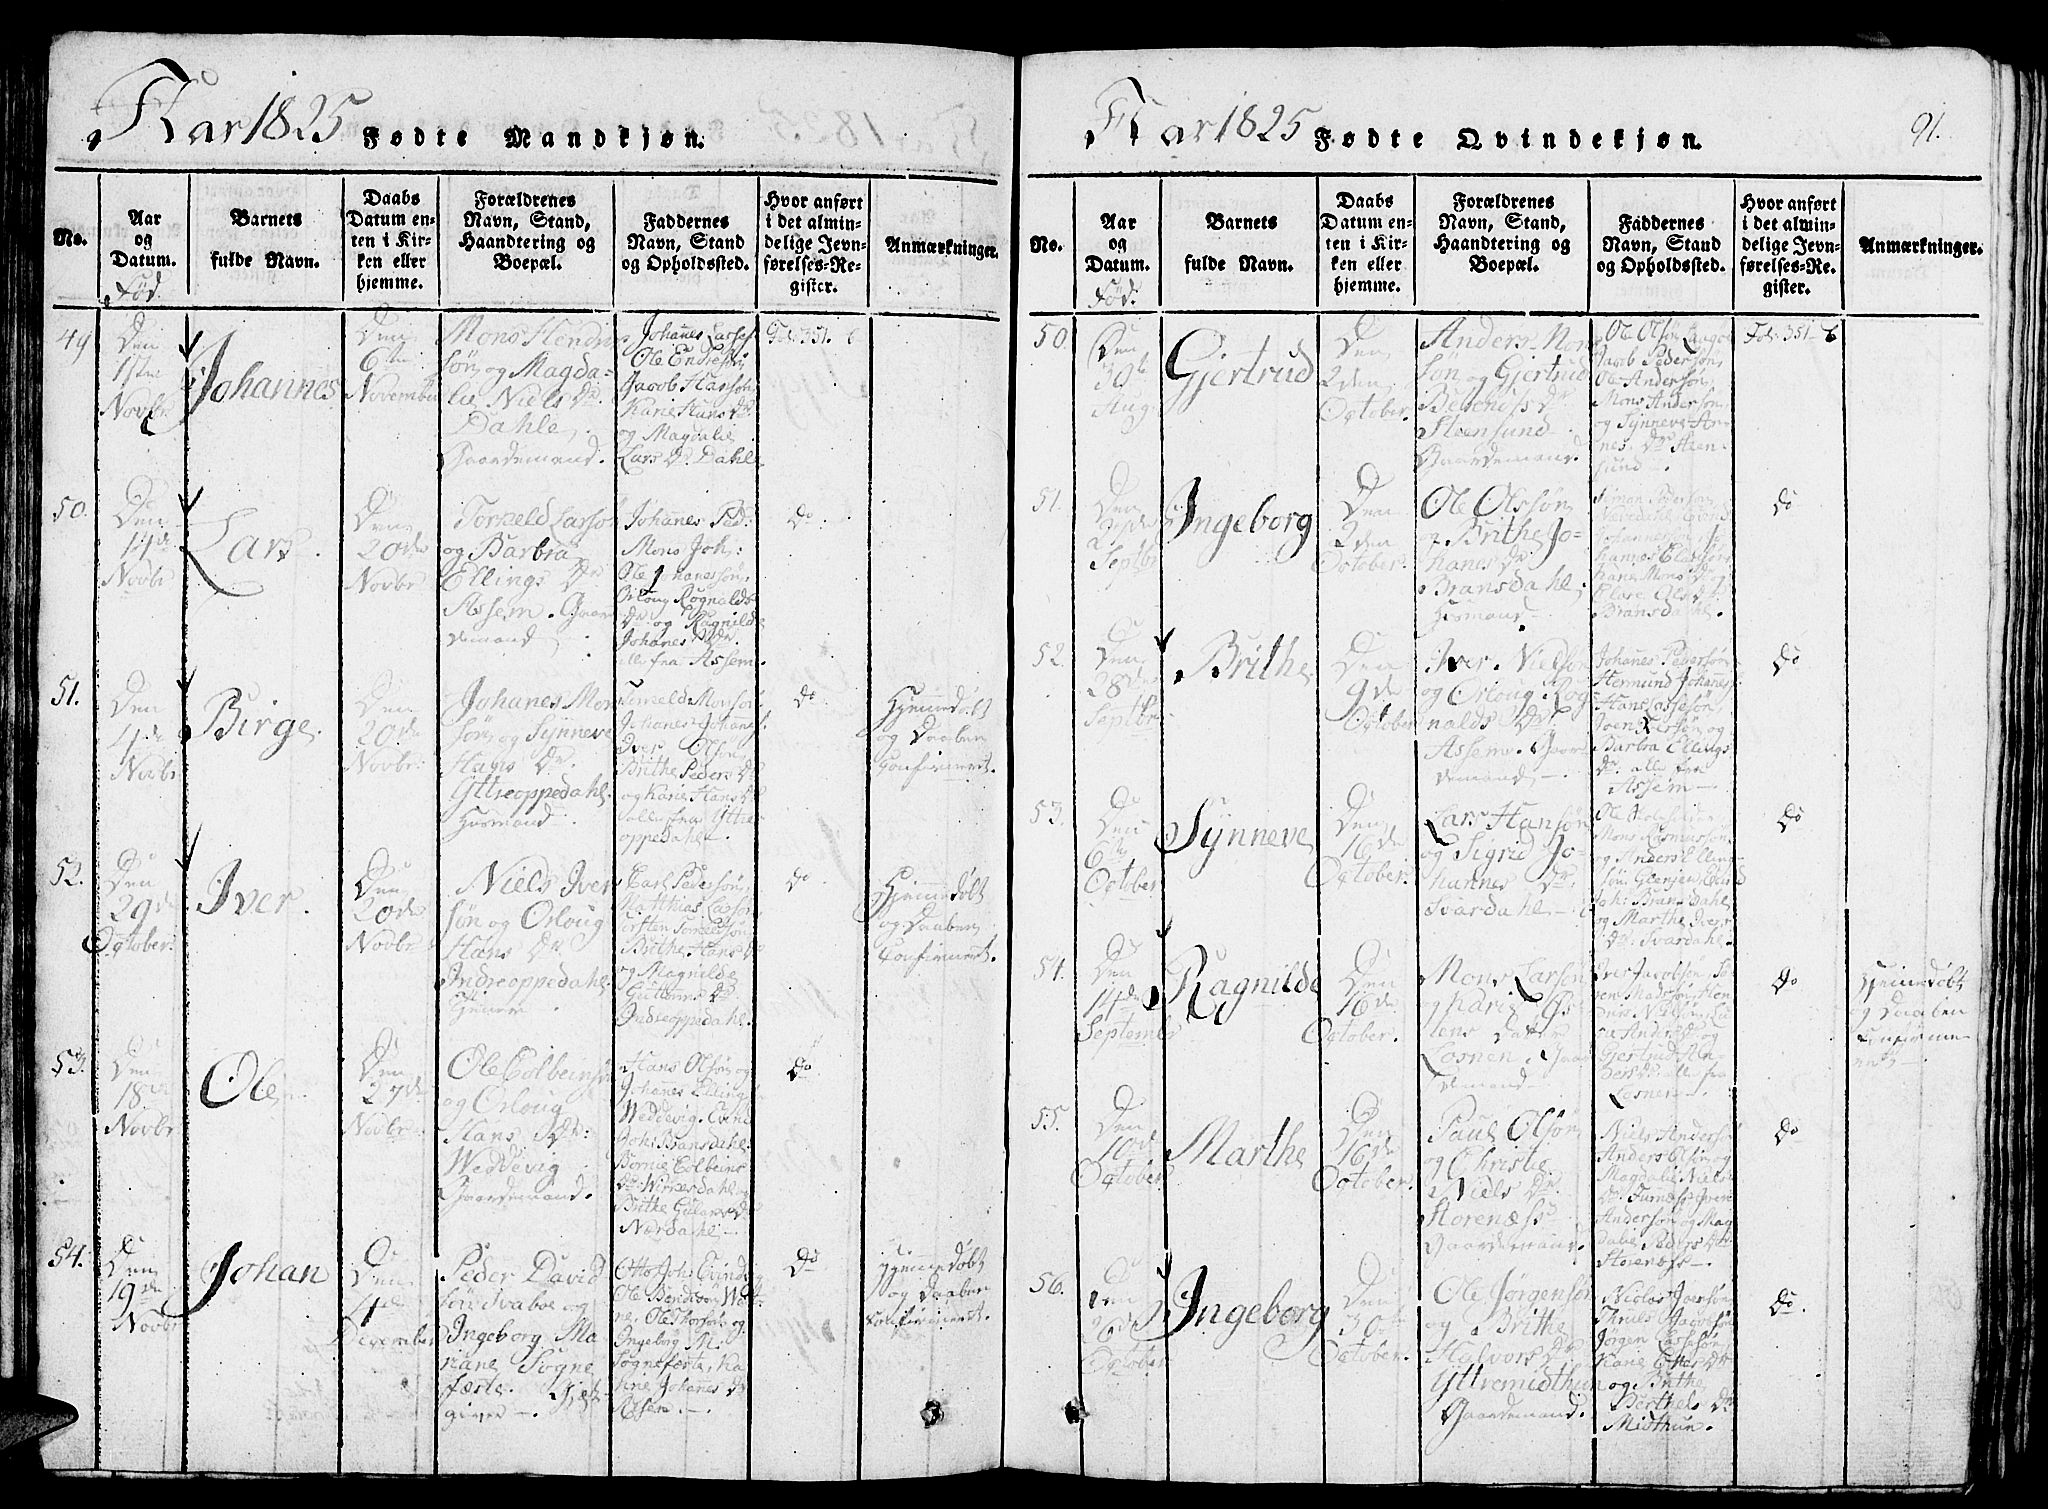 Aar 1825 Fødte Mandkjøn.
No.
Aar
og
Datum.
Fød.
Barnets
fulde Navn.
Daabs
Datum en-
ten i Kir-
ken eller
hjemme.
Forældrenes
Navn, Stand,
Haandtering og
Boepæl.
Faddernes
Navn, Stand
og Opholdssted.
Hvor anført
i det almin-
delige Jevn-
førelses-Re-
gister.
Anmærkninger.
49
Den
1ste
Novbr
Johannes
Den
6te
November
Mons Hendric
søn og Magda-
le Niels Dr.
Dahle,
Gaardemand.
Johanes Larses
Ole Endresøn,
Jacob Hansøn
Karie Hans Dr
og Magdalie
Lars Dr Dahle
Fol. 351.
50.
Den
14de
Novbr
Lars
Den
20de
Novbr
Torkeld Larso
og Barbra
Ellings Dr
Assem. Gaar
demand
Johanes Ped:
Mons Joh:
Ole Johanessøn,
Orloug Rognalds
Dr. og Ragnilde
Johanes Dr
alle fra Assem.
do
51.
Den
4de
Novbr
Birge
Den
20de
Novbr:
Johanes Mon
søn og Synneve
Hans Dr.
Yttreoppedahl.
Husmand
Monsøn
Johanes Johanes
Iver Olsøn
Brithe Peders Dr
og Karie Hans Dr
alle fra Yttre
oppedahl.
do
Hjemmedøbt
og Daaben
Confirmeret.
52.
Den
29de
October:
Iver.
Den
20de
Novbr
Niels Iver
søn og Orloug
Hans Dr
Indreoppedahl.
Carl Pedersøn,
Matthias Larsøn
Torsten
Brithe Hans Dr
og Magnilde
Guttorms Dr
Indreoppedahl.
do
Hjemmedøbt
og Daaben
Confirmeret.
53.
Den
18de
Novbr
Ole
Den
27de
Novbr
Ole Colbeinsø
og Orloug
Hans Dr:
Weddevig
Gaardemand.
Hans Olsøn og
Johanes Ellings
Weddevig.
Joh: Bransdahl
Colbeins
Dr
Brithe
Nærdahl.
do
54.
Den
19de
Novbr
Johan
Den
4de
December
Peder David
søn Svaboe og
Ingeborg Ma
riane Sogne
fæste. Gjest-
giver
Otto Joh:
Ole Bendixen
Ole Thorsøn og
Ingeborg M:
Sognefæste,
Johanes Dr
do
Hjemmedøbt
og Daaben
Confirmeret.
Aar 1825 Fødte Qvindekjøn.
91.
No.
Aar
og
Datum.
Fød.
Barnets
fulde Navn.
Daabs
Datum en-
ten i Kir-
ken eller
hjemme.
Forældrenes
Navn, Stand,
Haandtering og
Boepæl.
Faddernes
Navn, Stand
og Opholdssted.
Hvor anført
i det almin-
delige Jevn-
førelses-Re-
gister.
Anmærkninger.
50.
Den
30te
Aug
Gjertrud
Den
2den
October.
Anders Mons
søn og Gjertrud
Dr
Steensund
Gaardemand.
Ole Olsøn
Jacob Pedersøn,
Ole Andersøn,
Mons Andersøn,
og Synneve
Dr Steen-
sund.
Fol: 351
51.
Den
Septbr
Ingeborg
Den
2den
October.
Ole Olssøn
og Brithe Jo-
hanes Dr
Bransdahl,
Husmand
Simon Pedersøn
Johannesøn
hannes
Mons Dr og
Ols Dr
Bransdahl.
do
52.
Den
28de
Septbr
Brithe
Den
9de
October
Iver Nielsøn
og Orloug Rog-
nalds Dr.
Assem. Gaar
demand.
Johanes Pedersøn,
Hermund Johanes
Hans Lassesøn
og
Barbra Ellings
Dr. alle fra
Assem
do
53.
Den
6te
October
Synneve
Den
16de
October.
Lars Hansøn
og Sigrid Jo-
hannes Dr,
Svardahl
Ole
Mons Rasmussøn
og Anders Elling-
søn,
Joh: Bransdahl
og Marthe Ivers
Dr. Svardahl.
do
54.
Den
14de
September
Ragnilde
Den
16de
October.
Mons Larsøn
og Karie Es
tens Datr
Losnen. Gaar
demand
Iver Jacobsøn,
Madssøn,
Nielsøn,
Anders Dr og
Gjertrud An-
ders Dr. alle fra
Losnen.
do
Hjemmedøbt
og Daaben
Confirme-
ret
55.
Den
10de
October
Marthe
Den
16de
October.
Paul Olsøn
og Christe
Niels Dr
Storenæss
Gaardemand.
Niels Andersø
Anders Olsøn og
Magdalie Niels
Dr. Furnæss,
Andersøn og Mag
dale Peders Dr
Storenæss.
do
56.
Den
26de
October
Ingeborg
Den
30te
October.
Ole Jørgensøn
og Brithe
Halvors Dr
Yttremidthun
Gaardemand.
Nicolai Joersøn,
Jacobsøn
Jørgen Lassesøn
Karie Dr
og Brithe
Berthels Dr
Midthun.
do.